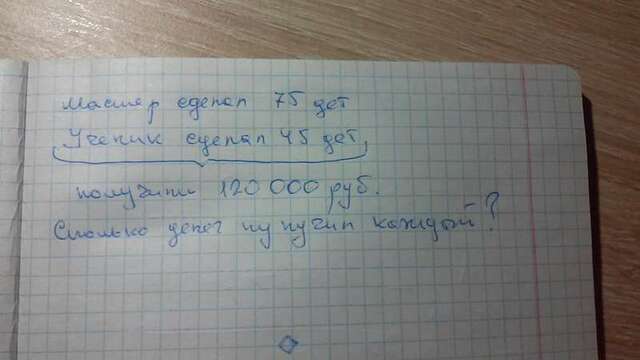 Мастер сделал 75 дет
Ученик сделал 45 дет
получили 120 000 руб.
Сколько денег получил каждый - ?